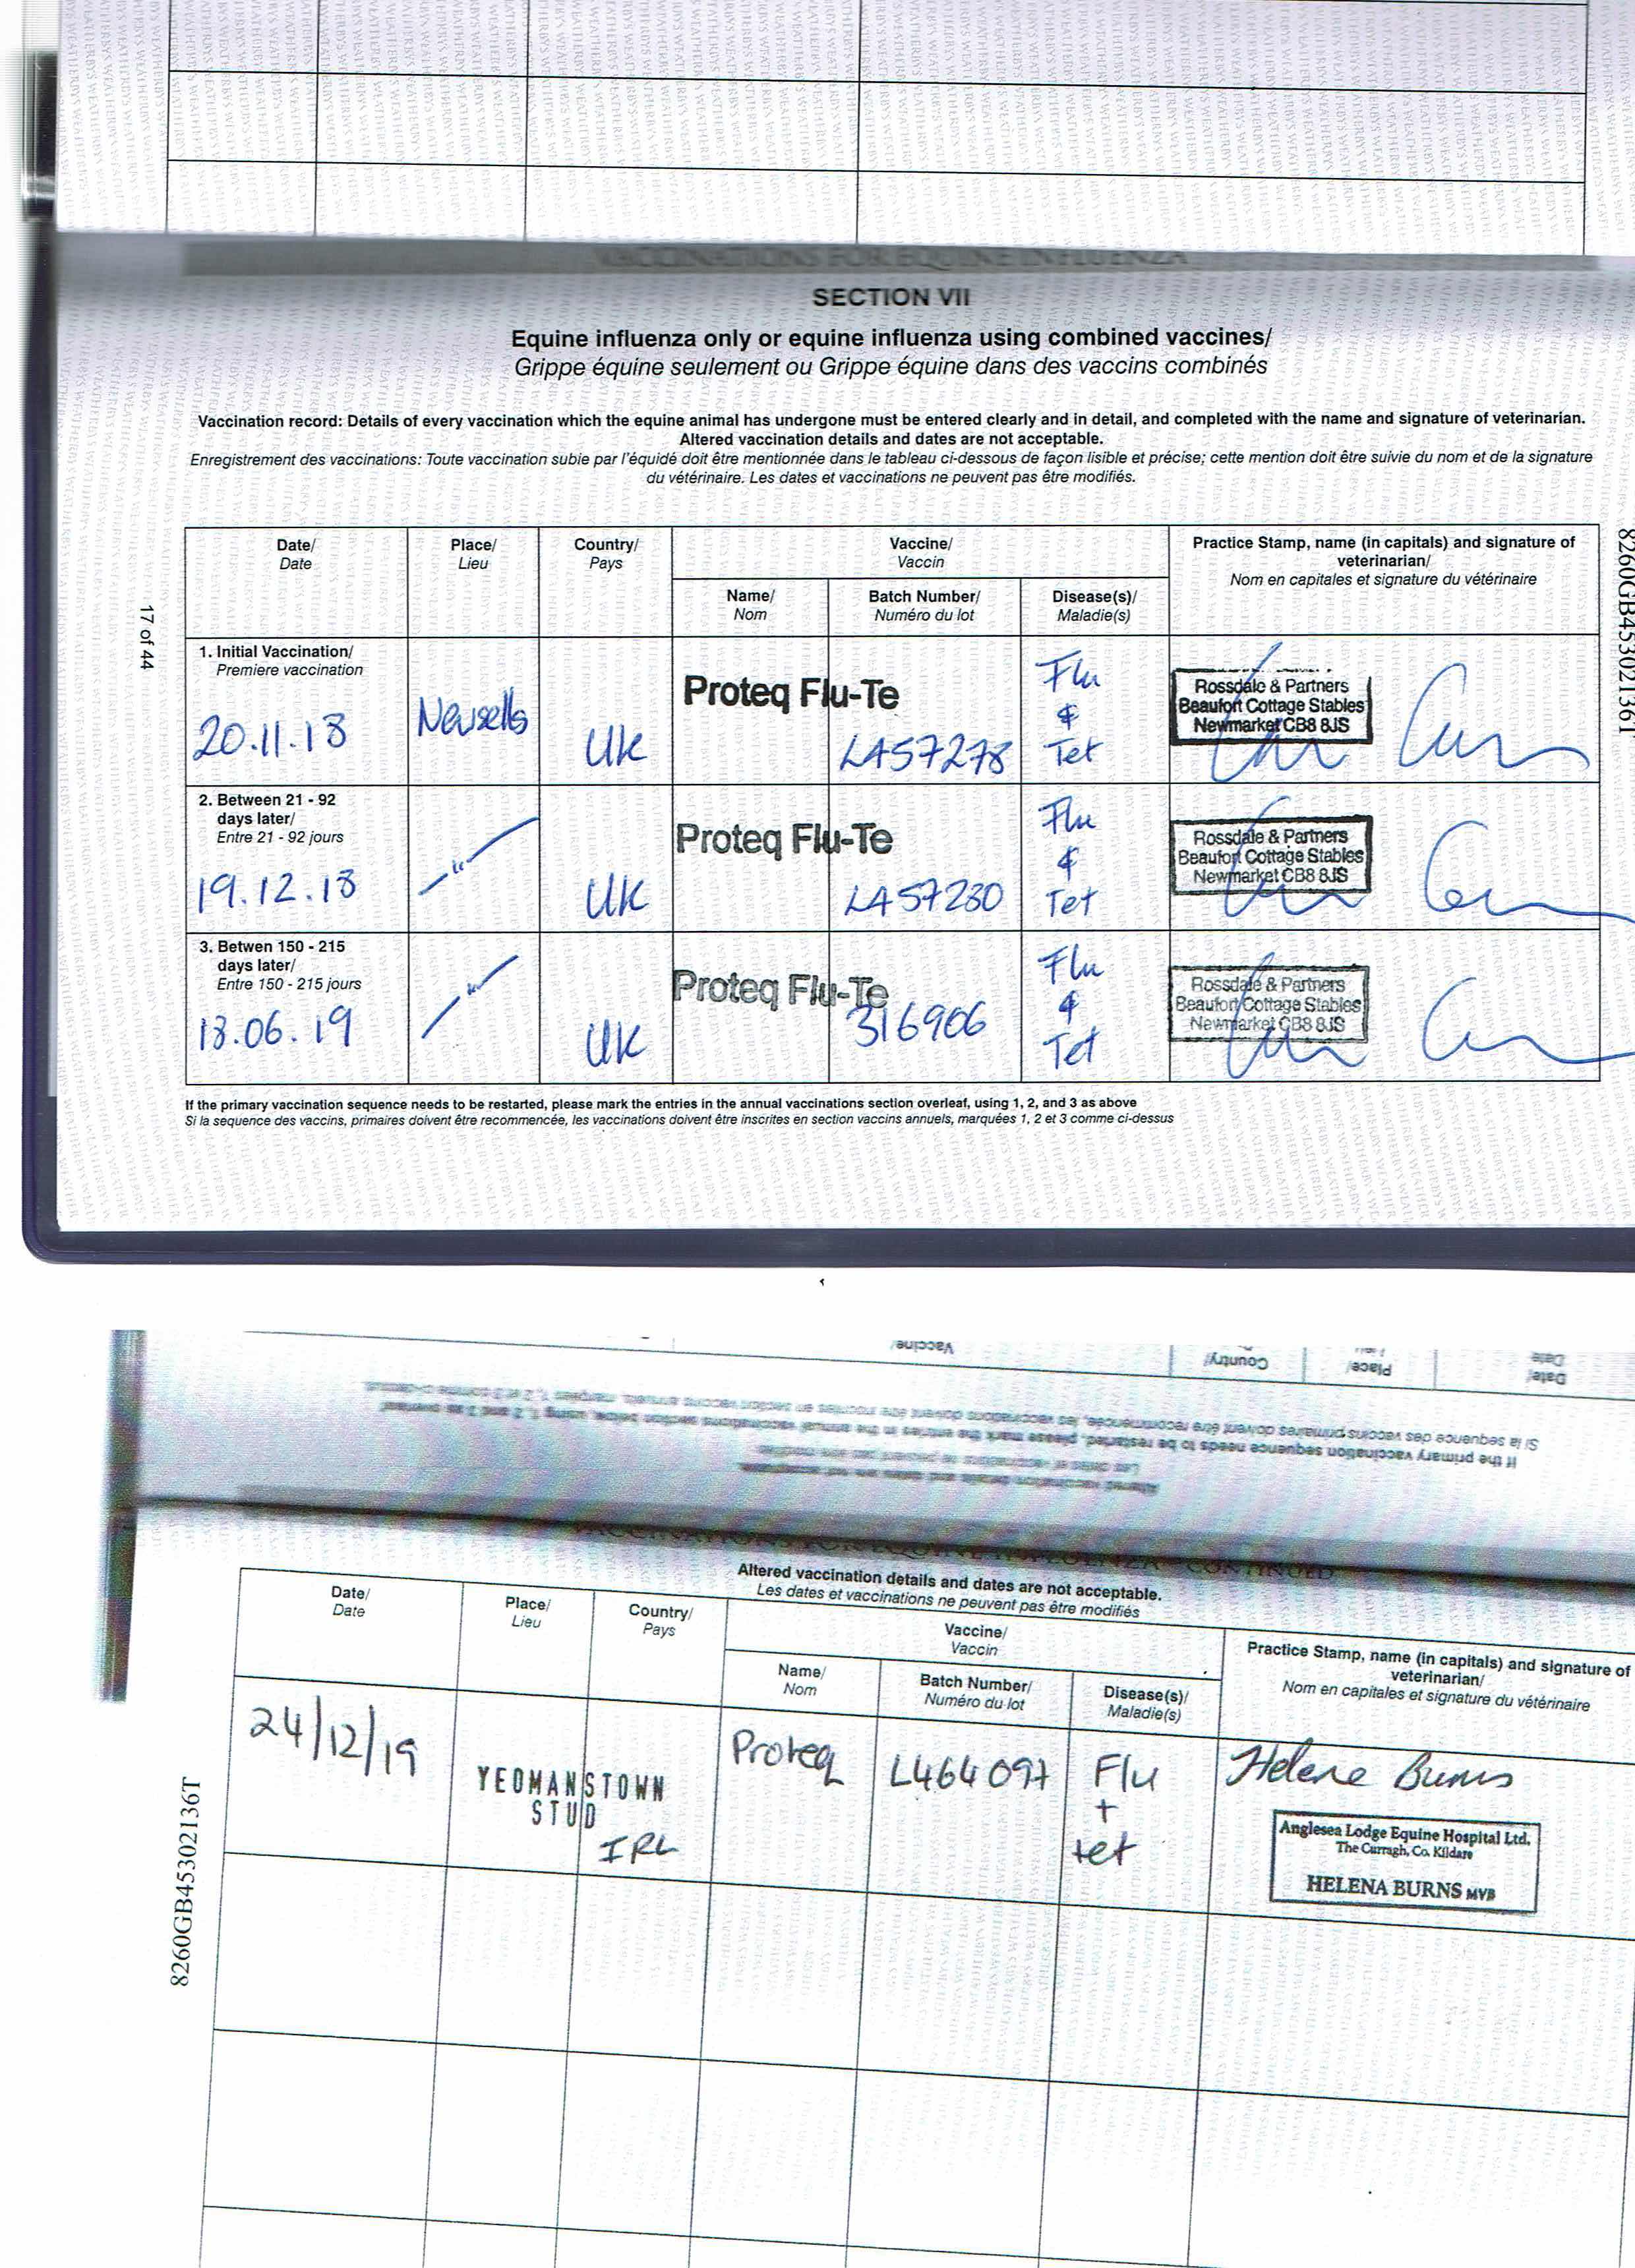 SECTION VII
Equine influenza only or equine influenza using combined vaccines/
Grippe équine seulement ou Grippe équine dans des vaccins combinés
Vaccination record: Details of every vaccination which the equine animal has undergone must be entered clearly and in detail, and completed with the name and signature of veterinarian.
Altered vaccination details and dates are not acceptable.
Enregistrement des vaccinations: Toute vaccination subie par l'équidé doit être mentionnée dans le tableau ci-dessous de façon lisible et précise; cette mention doit être suivie du nom et de la signature
du vétérinaire. Les dates et vaccinations ne peuvent pas être modifiés.
Date/
Date
Place/
Lieu
Country/
Pays
Vaccine/
Vaccin
Name/
Nom
Batch Number/
Numéro du lot
Disease(s)/
Maladie(s)
Practice Stamp, name (in capitals) and signature of
veterinarian/
Nom en capitales et signature du vétérinaire
17 of 44
8260GB45302136T
1. Initial Vaccination/
Premiere vaccination
20.11.18
Newsells
UK
Proteq Flu-Te
LA57278
Flu
&
Tet
Rossdale & Partners
Beaufort Cottage Stables
Newmarket CB8 8JS
2. Between 21 - 92
days later/
Entre 21 - 92 jours
19.12.18
UK
Proteq Flu-Te
LA57280
Flu
&
Tet
Rossdale & Partners
Beaufort Cottage Stables
Newmarket CB8 8JS
3. Betwen 150 - 215
days later/
Entre 150 - 215 jours
18.06.19
UK
Proteq Flu-Te
316906
Flu
&
Tet
Rossdale & Partners
Beaufort Cottage Stables
Newmarket CB8 8JS
If the primary vaccination sequence needs to be restarted, please mark the entries in the annual vaccinations section overleaf, using 1, 2, and 3 as above
Si la sequence des vaccins, primaires doivent être recommencée, les vaccinations doivent être inscrites en section vaccins annuels, marquées 1, 2 et 3 comme ci-dessus
Vaccine/
Country/
Place/
Date/
Date
Si la sequence des vaccins primaires doivent être recommencée, les vaccinations doivent être inscrites en section vaccins annuels, marquées 1, 2 et 3 comme ci-dessus
If the primary vaccination sequence needs to be restarted, please mark the entries in the annual vaccinations section below, using 1, 2 and 3 as overleaf
Les dates et vaccinations ne peuvent pas être modifiés
Altered vaccination details and dates are not acceptable.
Altered vaccination details and dates are not acceptable.
Les dates et vaccinations ne peuvent pas être modifiés
Date/
Date
Place/
Lieu
Country/
Pays
Vaccine/
Vaccin
Name/
Nom
Batch Number/
Numéro du lot
Disease(s)/
Maladie(s)
Practice Stamp, name (in capitals) and signature of
veterinarian/
Nom en capitales et signature du vétérinaire
24/12/19
YEOMANSTOWN
STUD
IRL
Proteq
L464097
Flu
+
tet
Helena Burns
Anglesea Lodge Equine Hospital Ltd.
The Curragh, Co. Kildare
HELENA BURNS MVB
8260GB45302136T